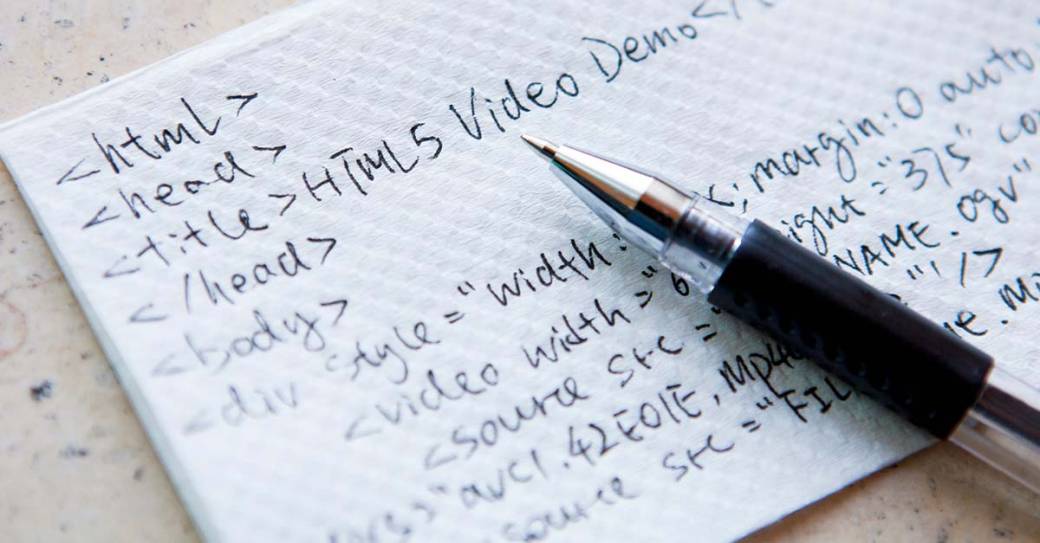 <html>
<head>
<title>HTML5 Video Demo</
</head>
<body>
<div style="width: margin:0 auto
<video width="6 ight="375"
<source src=" NAME.ogv"
"avc1.42E01E, Mp4 "'/>
source src="FIL